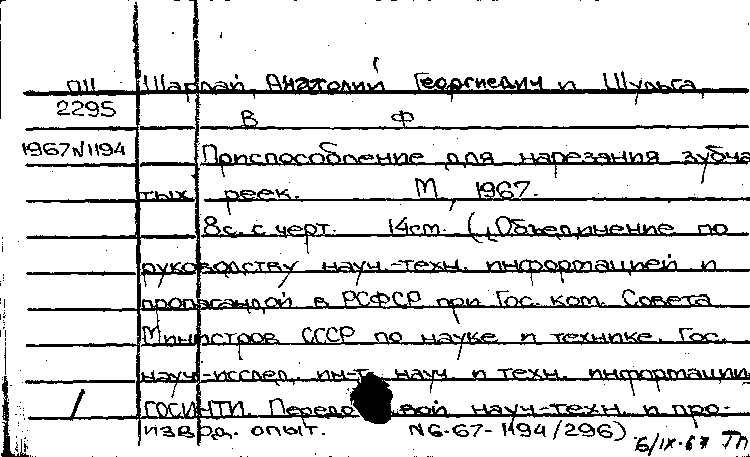 ПШ Шарлай, Анатолий Георгиевич и Шульга,
2295 В Ф
1967 N1194 Приспособление для нарезания зубча
тых реек. М, 1967.
8с. с черт. 14см. (Объединение по
руководству науч.-техн. информацией и
пропагандой в РСФСР при Гос. ком. Совета
Министров СССР по науке и технике. Гос.
науч-исслед. ин-т науч и техн. информации
ГОСИНТИ. Передовой науч-техн. и про-
извод. опыт. N6-67-1194/296)
6/IX-67